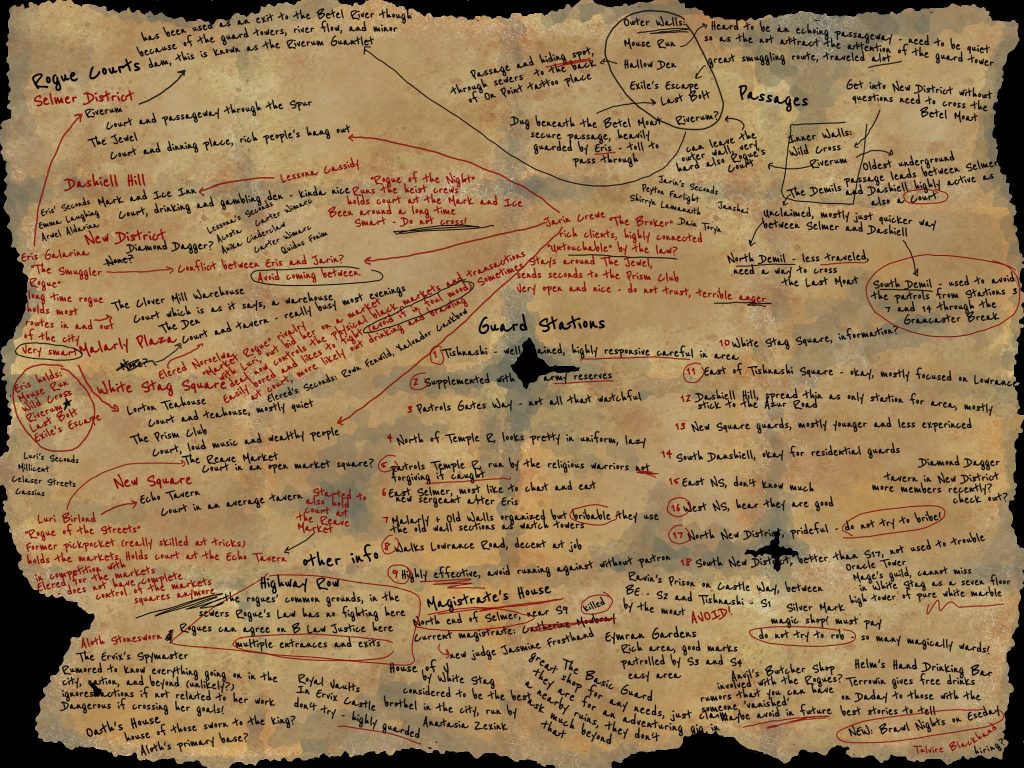 has been used as an exit to the Betel River though
because of the guard towers, river flow, and minor
dam, this is known as the Riverum Gauntlet
Rogue Courts
Selmer District
Riverum
Court and passageway through the Spur
The Jewel
Court and dinning place, rich people's hang out
Dashiell Hill
Mark and Ice Inn
Court, drinking and gambling den - kinda nice
Eris' Seconds
Emma Laughing
Arvel Aldarina
Lessona Cassidy
"Rogue of the Night"
Runs the heist crews
holds court at the Mark and Ice
Been around a long time
Smart - Do not cross!
Lessona's Seconds
Acosta
Anika Cinderclaw
Carter Wimarc
Carter Wimarc
Quidus Fonim
New District
Diamond Dagger?
None?
Eris Galarina
"The Smuggler
Rogue"
long time rogue
holds most
routes in and out
of the city
Very smart
Conflict between Eris and Jarin?
Avoid coming between
The Clover Mill Warehouse
Court which is as it says, a warehouse
The Den
Court and tavern - really busy most evenings
Malarly Plaza
Elered Noroelwa
"Market Rogue" rivalry
with Luri, out bid her on a market
deal, now controls the physical black markets and transactions
Easily bored and likes to fight (avoid if in foul mood)
at court, more likely out drinking and brawling
Elered's Seconds: Rown Fenwild, Kalvader Caskbow
Eris holds:
Mouse Run
Wild Cross
Riverum
Last Bolt
Exile's Escape
White Stag Square
Lorton Teahouse
Court and teahouse, mostly quiet
The Prism Club
Court, loud music and wealthy people
The Reave Market
Court in an open market square?
Luri's Seconds
Millicent
Celaser Streets
Cassius
New Square
Echo Tavern
Court in an average tavern
Started to
also hold
court at
the Reave
Market
Luri Birlond
"Rogue of the Streets"
Former pickpocket (really skilled at tricks)
holds the markets, Holds court at the Echo Tavern
in competition with
Elered for the markets
does not have complete
control of the markets
squares anymore
Jarin Crewe "The Broker"
rich clients, highly connected
"untouchable" by the law?
Stays around The Jewel,
Sometimes sends seconds to the Prism Club
Very open and nice - do not trust, terrible anger
Jarin's Seconds
Peyton Farlight
Shirryn Lamanath
Janshai
Dain Torya
Passages
Outer Walls:
Mouse Run
Hallow Den
Exile's Escape
Last Bolt
Riverum?
Heard to be an echoing passageway - need to be quiet
so as the not attract the attention of the guard tower
great smuggling route, traveled alot
Passage and hiding spot,
through sewers to the back
of On Point tattoo place
Dug beneath the Betel Moat
secure passage, heavily
guarded by Eris - toll to
pass through
can leave the
outer wall, very
hard also Rogue's
Court
Get into New District without
questions need to cross the
Betel Moat
Inner Walls:
Wild Cross
Riverum
The Demils and Dashiell
Oldest underground
passage leads between Selmer
highly active as
also a Court
unclaimed, mostly just quicker way
between Selmer and Dashiell
North Demil - less traveled,
need a way to cross
the Last Moat
South Demil - used to avoid
the patrols from Stations 3
7 and 14 through the
Grancaster Break
Guard Stations
1 Tishnashi - well ained, highly responsive careful in area
2 Supplemented with army reserves
3 Patrols Gates Way - not all that watchful
4 North of Temple R, looks pretty in uniform, lazy
5 patrols Temple R, run by the religious warriors not
forgiving if caught
6 East Selmer, most like to chat and eat
new sergeant after Eris
7 Malarly + Old Walls organized but bribable they use
the old wall sections as watch towers
8 Walks Lowrance Road, decent at job
9 Highly effective, avoid running against without patron
10 White Stag Square, information?
11 East of Tishnashi Square - okay, mostly focused on Lowrance
12 Dashiell Hill, spread thin as only station for area, mostly
stick to the Azur Road
13 New Square guards, mostly younger and less experinced
14 South Danshiell, okay for residential guards
15 East NS, don't know much
16 West NS, hear they are good
17 North New District, prideful - do not try to bribe!
18 South New District, better than S17, not used to trouble
Diamond Dagger
tavern in New District
more members recently?
check out?
other info
Highway Row
the rogues' common grounds, in the
sewers Rogue's Law has no fighting here
Rogues can agree on B Law Justice here
multiple entrances and exits
Aloth Stonesworn
The Ervix's Spymaster
Rumored to know everything going on in the
city, nation, and beyond (unlikely?)
ignores actions if not related to her work
Dangerous if crossing her goals!
Oath's House
house of those sworn to the king?
Aloth's primary base?
Royal Vaults
In Ervix Castle
don't try - highly guarded
Magistrate's House
North end of Selmer, near S9
killed
Current magistrate: Catherine
new judge Jasmine Frosthand
House of V
by White Stag
considered to be the best
brothel in the city, run by
Anatasia Zekink
The Basic Guard
great shop for any needs, just
they are for an adventuring gig in
a nearby ruins, they don't
ask much beyond
that
Eymran Gardens
Rich area, good marks
patrolled by S3 and S4
easy area
Ravin's Prison on Castle Way, between
BE - S2 and Tishnashi - S1
by the moat AVOID!
Oracle Tower
Mage's guild, cannot miss
in White Stag as a seven floor
high tower of pure white marble
Silver Mark
magic shop! must pay
do not try to rob - so many magically wards!
Anvil's Butcher Shop
involved with the Rogues?
rumors that you can have
someone 'vanished'
Maybe avoid in future
Helm's Hand Drinking Bar
Terrowin gives free drinks
on Daday to those with the
best stories to tell
NEW: Brawl Nights on Eseday
Tulvire Blackhand
hiring?